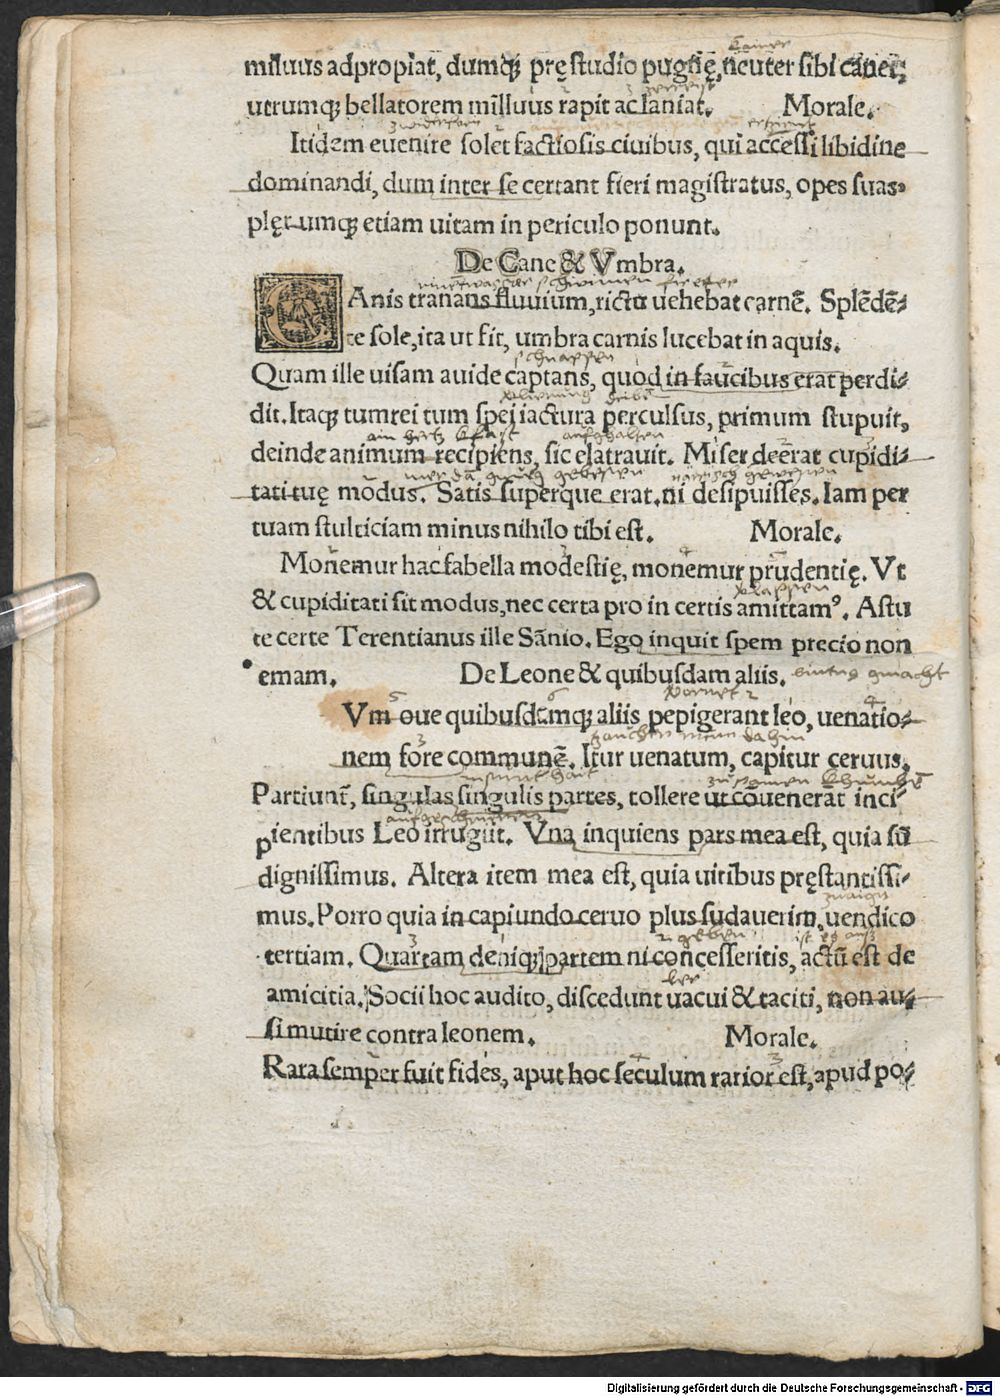 miluus adpropĩat, dumq; pręstudio pugnę, neuter sibi cauet;
utrumq; bellatorem milluus rapit ac laniat. Morale.
Itidem euenire solet factiosis ciuibus, qui accessi libidine
dominandi, dum inter se certant fieri magistratus, opes suas
plęrumq; etiam uitam in periculo ponunt.
De Cane & Vmbra.
CAnis tranans fluuium, rictu uehebat carnē. Splēdē-
te sole, ita ut fit, umbra carnis lucebat in aquis.
schnappen
Quam ille uisam auide captans, quod in faucibus erat perdi-
dit. Itaq; tum rei tum spei iactura perculsus, primum stupuit,
deinde animum recipiens, sic elatrauit. Miser deerat cupidi-
tati tuę modus. Satis superque erat. ni desipuisses. Iam per
tuam stulticiam minus nihilo tibi est. Morale.
Monemur hac fabella modestię, monemur prudentię. Vt
& cupiditati sit modus, nec certa pro in certis amittamꝰ. Astu
te certe Terentianus ille Sānio. Ego inquit spem precio non
emam. De Leone & quibusdam aliis.
Vm oue quibusdamq; aliis pepigerant leo, uenatio-
nem fore communē. Itur uenatum, capitur ceruus.
Partiunt̃, singulas singulis partes, tollere ut cōuenerat inci-
pientibus Leo irrugiit. Vna inquiens pars mea est, quia sū
dignissimus. Altera item mea est, quia uiribus pręstantissi-
mus. Porro quia in capiundo ceruo plus sudauerim, uendico
tertiam. Quartam deniq; partem ni concesseritis, actū est de
amicitia. Socii hoc audito, discedunt uacui & taciti, non au-
si mutire contra leonem. Morale.
Rara semper fuit fides, aput hoc seculum rarior est, apud po-
Digitalisierung gefördert durch die Deutsche Forschungsgemeinschaft - DFG